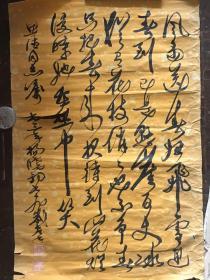 风雨送春归飞雪迎
春到已是悬崖百丈冰
犹有花枝俏俏也不争春
只把春来报待到山花烂
漫时她在丛中笑
同志